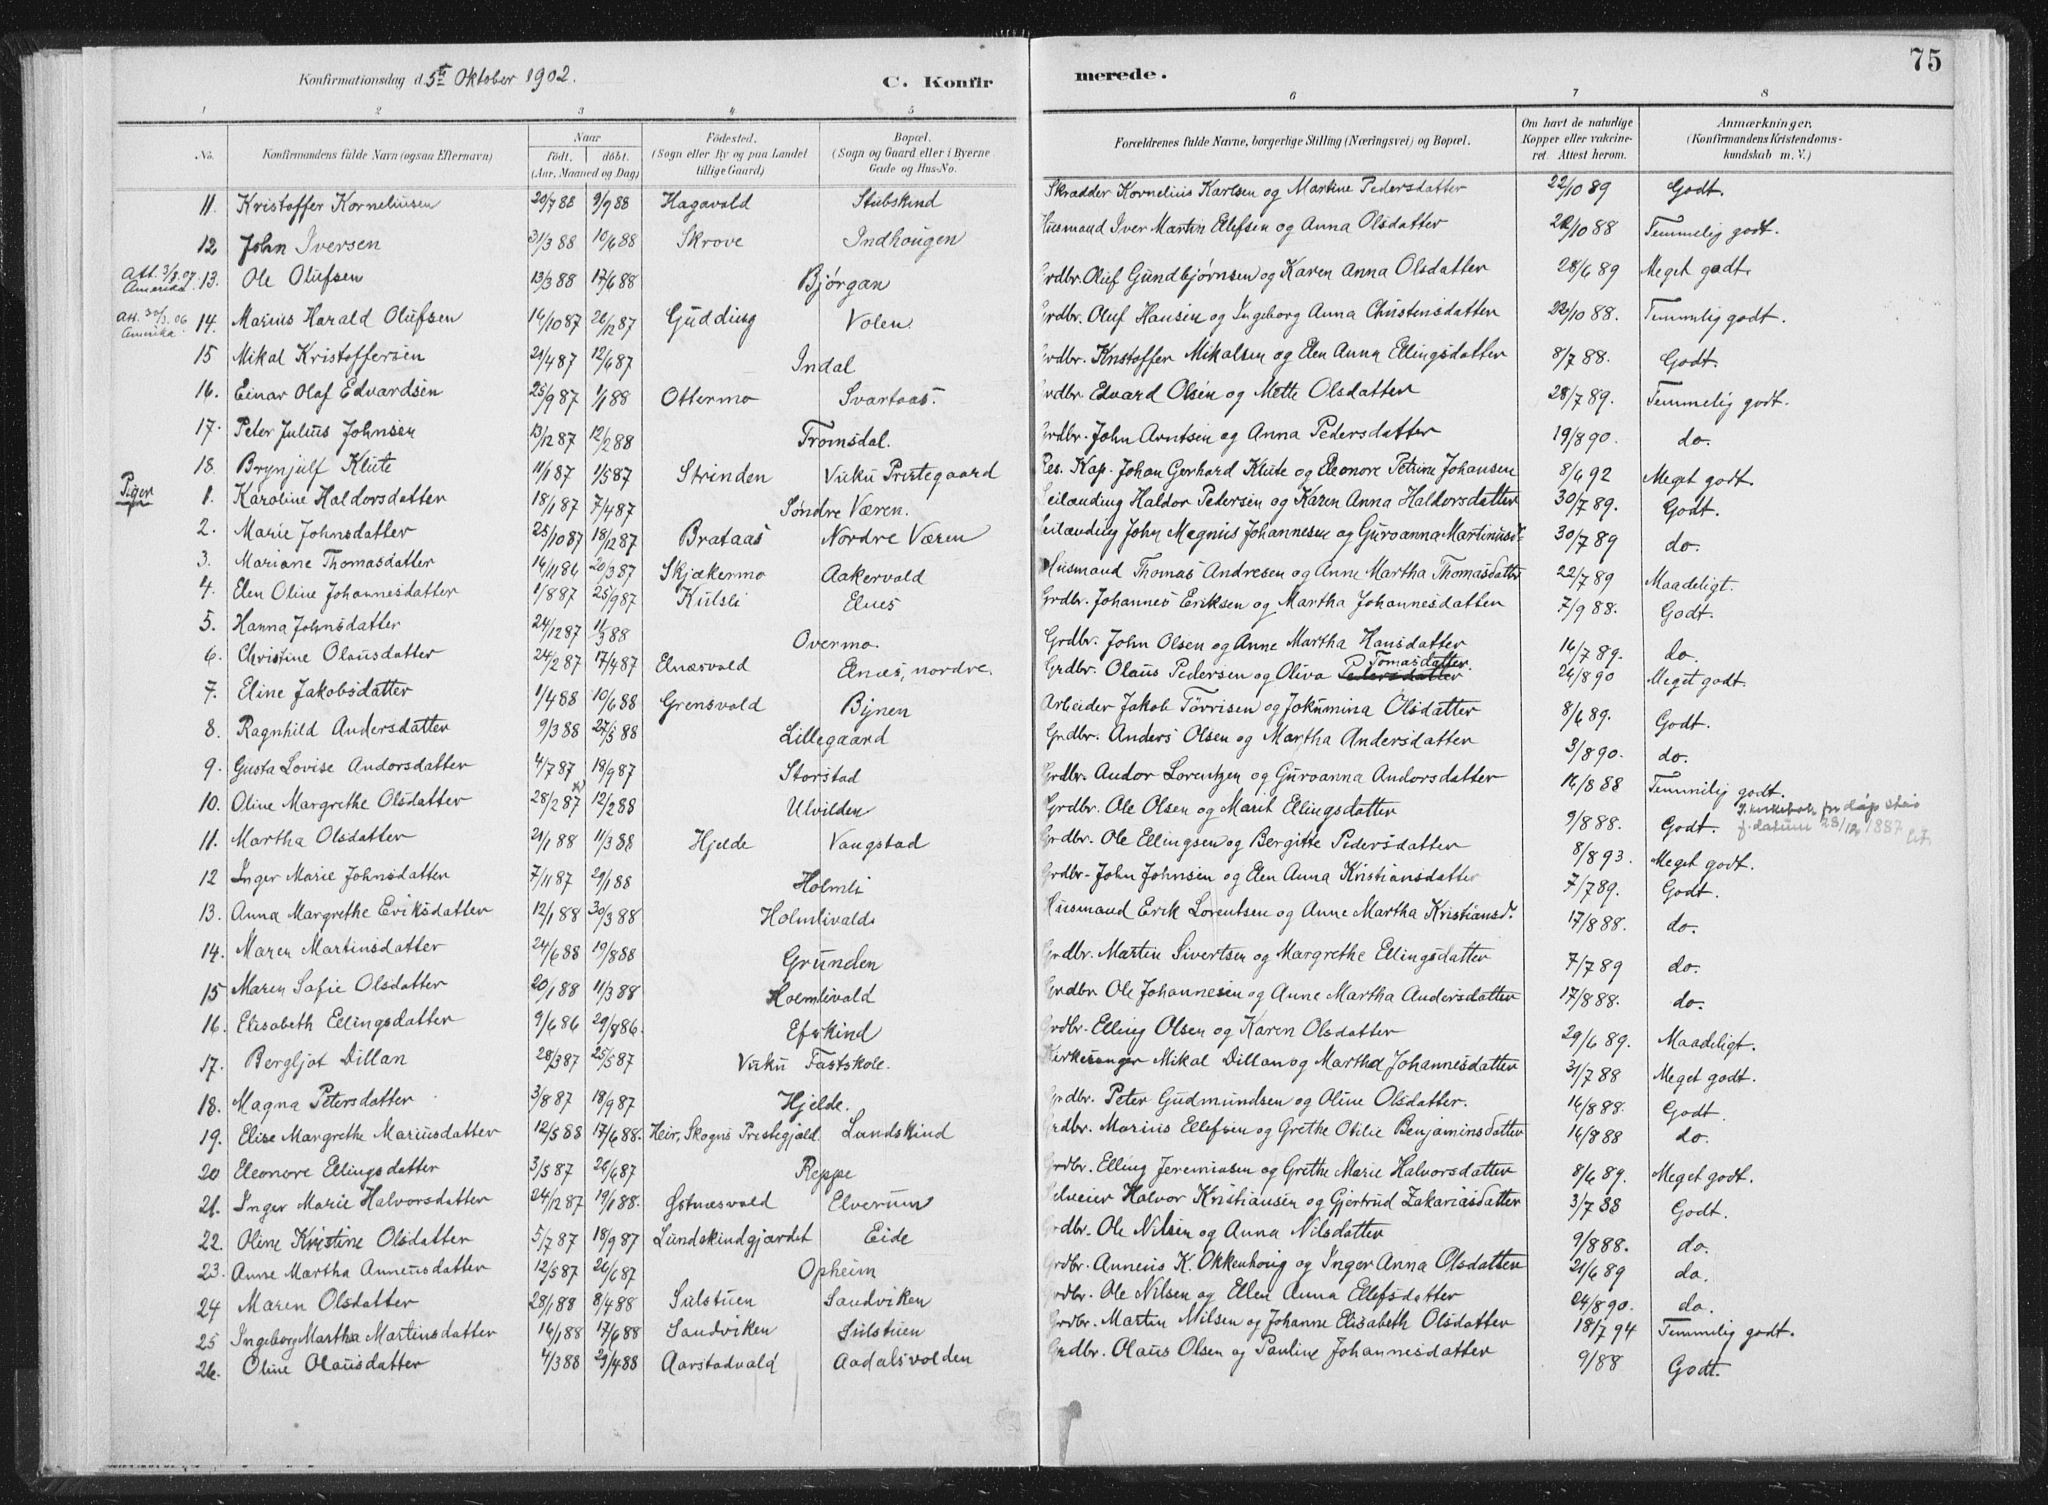 75
Konfirmationsdag d. 5te Oktober 1902.
C. Konfirmerede.
1 2 3 4 5 6 7 8
No. Konfirmandens fulde Navn (ogsaa Efternavn) Naar födt. döbt. (Aar, Maaned og Dag) Födested. (Sogn eller By og paa Landet tillige Gaard) Bopæl. (Sogn og Gaard eller i Byerne Gade og Hus-No. Forældrenes fulde Navne, borgerlige Stilling (Næringsvei) og Bopæl. Om havt de naturlige Kopper eller vakcineret. Attest herom. Anmærkninger. (Konfirmandens Kristendomskundskab m. V.)
11. Kristoffer Korneliusen 20/7 88 9/9 88 Hagavald Stubskind Skrædder Kornelius Karlsen og Martine Pedersdatter 22/10 89 Godt.
12 John Iversen 31/3 88 10/6 88 Skrove Indhaugen Husmand Iver Martin Ellefsen og Anna Olsdatter 22/10 88 Temmelig godt.
Att. 3/8.07. Amerika. 13. Ole Olufsen 13/3 88 17/6 88 Bjørgan Grdbr. Oluf Gundbjørnsen og Karen Anna Olsdatter 28/6 89 Meget godt.
Att. 30/3.06 Amerika. 14. Marius Harald Olufsen 14/10 87 26/12 87 Gudding Volen. Grdbr. Oluf Hansen og Ingeborg Anna Christensdatter 22/10 88. Temmelig godt.
15 Mikal Kristoffersen 21/4 87 12/6 87 Indal Grdbr. Kristoffer Mikalsen og Elen Anna Ellingsdatter 8/7 88. Godt.
16. Einar Olaf Edvardsen 25/9 87 1/1 88 Ottermo Svartaas. Grdbr. Edvard Olsen og Mette Olsdatter 28/7 89. Temmelig godt.
17. Peter Julius Johnsen 13/12 87 12/2 88 Tromsdal. Grdbr. John Arntsen og Anna Pedersdatter 19/8 90. do.
18. Brynjulf Klüte 11/1 87 1/5 87 Strinden Vuku Prestegaard Res. Kap. Johan Gerhard Klüte og Eleonore Petrine Johansen 8/6 92 Meget godt.
Piger
1. Karoline Haldorsdatter 18/1 87 7/4 87 Søndre Væren. Leilænding Haldor Pedersen og Karen Anna Haldorsdatter 30/7 89. Godt.
2. Marie Johnsdatter 25/10 87 18/12 87 Brataas Nordre Væren Leilænding John Magnus Johannesen og Guroanna Martinusd. 30/7 89 do.
3. Mariane Thomasdatter 14/11 86 20/3 87 Skjækermo Aakervald Husmand Thomas Andresen og Anne Martha Thomasdatter 22/7 89 Maadeligt.
4. Elen Oline Johannesdatter 1/8 87 25/9 87 Kulsli Elnes Grdbr. Johannes Eriksen og Martha Johannesdatter 7/9 88. Godt.
5. Hanna Johnsdatter 24/12 87 11/3 88 Overmo. Grdbr. John Olsen og Anne Martha Hansdatter 14/7 89. do.
6. Christine Olausdatter 24/2 87 17/4 87 Elnæsvald Elnes, nordre. Grdbr. Olaus Pedersen og Oliva Pedersdatter Tomasdatter. 26/8 90 Meget godt.
7. Eline Jakobsdatter 1/4 88 10/6 88 Grensvald Bynen Arbeider Jakob Törrisen og Jokumina Olsdatter 8/6 89. Godt.
8. Ragnhild Andersdatter 9/3 88 27/5 88 Lillegaard Grdbr. Anders Olsen og Martha Andersdatter 3/8 90. do.
9. Gusta Lovise Andorsdatter 4/7 87 18/9 87 Storstad Grdbr. Andor Lorentzen og Guroanna Andorsdatter 16/8 88 Temmelig godt.
10. Oline Margrethe Olsdatter 28/2 87 12/2 88 Ulvilden Grdbr. Ole Olsen og Marit Ellingsdatter 9/8 88. Godt. datum 28/12 1887
11. Martha Olsdatter 21/1 88 11/3 88 Hjelde Vangstad Grdbr. Ole Ellingsen og Bergitte Pedersdatter 8/8 93. Meget godt.
12 Inger Marie Johnsdatter 7/11 87 29/1 88 Holmli Grdbr. John Johnsen og Elen Anna Kristiansdatter 7/7 89. Godt.
13. Anna Margrethe Eriksdatter 12/1 88 30/3 88 Holmlivald. Husmand Erik Lorentsen og Anne Martha Kristiansd. 17/8 88. do.
14. Maren Martinsdatter 24/6 88 19/8 88 Grunden Grdbr. Martin Sivertsen og Margrethe Ellingsdatter 7/7 89 do.
15 Maren Sofie Olsdatter 20/1 88 11/3 88 Holmlivald Grdbr Ole Johannesen og Anne Martha Andersdatter 17/8 88. do.
16. Elisabeth Ellingsdatter 9/6 86 29/8 86. Efskind Grdbr. Elling Olsen og Karen Olsdatter 29/6 89. Maadeligt.
17. Bergljot Dillan 28/3 87 25/5 87 Vuku Fastskole. Kirkesanger Mikal Dillan og Martha Johannesdatter 31/7 88 Meget godt.
18. Magna Petersdatter 3/8 87 18/9 87 Hjelde. Grdbr. Peter Gudmundsen og Oline Olsdatter. 16/8 88. Godt.
19. Elise Margrethe Mariusdatter 12/5 88 17/6 88. Heir, Skogns Prestegjæld. Landskind Grdbr. Marius Ellefsen og Grethe Otilie Benjaminsdatter 16/8 88 do.
20 Eleonore Ellingsdatter 3/5 87 26/6 87 Reppe Grdbr. Elling Jeremiasen og Grethe Marie Halvorsdatter 8/6 89. Meget godt.
21. Inger Marie Halvorsdatter 24/12 87 19/1 88. Østnesvald Elverum Selveier Halvor Kristiansen og Gjertrud Zakariasdatter 3/7 88 Godt.
22. Oline Kristine Olsdatter 5/7 87 18/9 87 Lundskindgjærdet Eide Grdbr. Ole Nilsen og Anna Nilsdatter 9/8 88. do.
23. Anne Martha Anneusdatter 12/5 87 26/6 87 Opheim Grdbr. Anneus K. Okkenhoug og Inger Anna Olsdatter 21/6 89 do.
24 Maren Olsdatter 28/1 88 8/4 88 Sulstuen Sandviken Grdbr. Ole Nilsen og Ellen Anna Ellefsdatter 24/8 90. do.
25 Ingeborg Martha Martinsdatter 14/1 88 17/6 88 Sandviken Sulstuen Grdbr. Martin Nilsen og Johanne Elisabeth Olsdatter 18/7 94 Temmelig godt.
26. Oline Olausdatter 4/3 88 29/4 88 Aarstadvald Aadalsvolden Grdbr. Olaus Olsen og Pauline Johannesdatter 9/88 Godt.